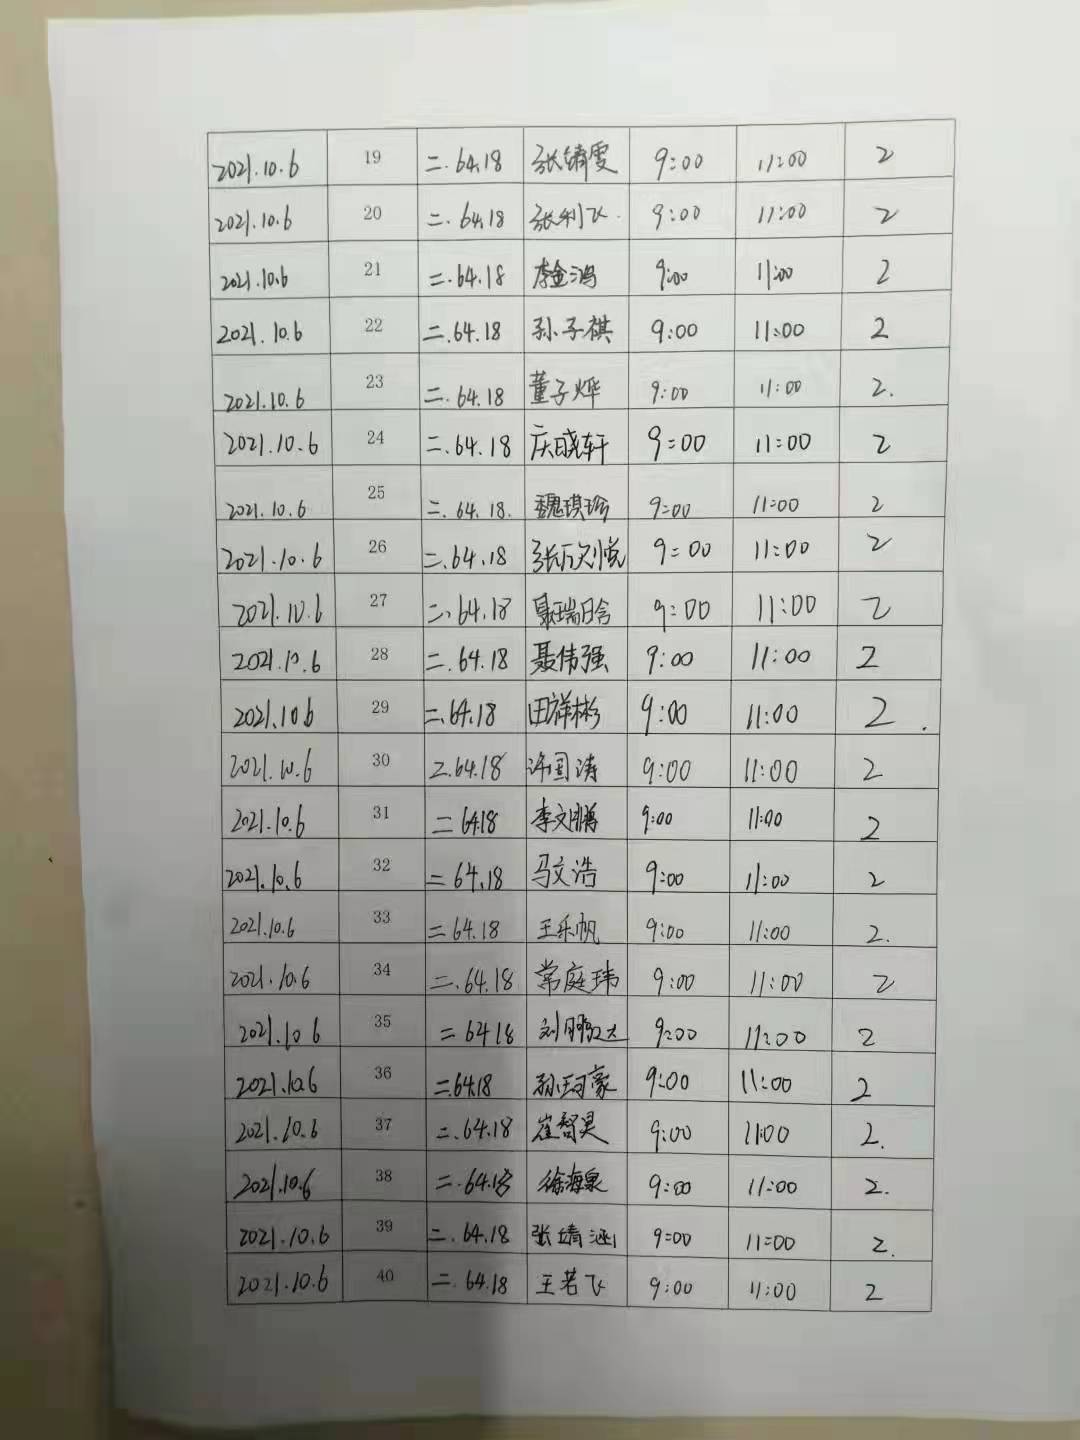 2021.10.6 19 二.64.18 张靖雯 9:00 11:00 2
2021.10.6 20 二.64.18 张利飞. 9:00 11:00 2
2021.10.6 21 二.64.18 李金鸿 9:00 11:00 2
2021.10.6 22 二.64.18 孙子祺 9:00 11:00 2
2021.10.6 23 二.64.18 董子烨 9:00 11:00 2.
2021.10.6 24 二.64.18 庆晓轩 9:00 11:00 2
2021.10.6 25 二.64.18. 魏琪珍 9:00 11:00 2
2021.10.6 26 二.64.18 9:00 11:00 2
2021.10.6 27 二.64.18 9:00 11:00 2
2021.10.6 28 二.64.18 聂伟强 9:00 11:00 2
2021.10.6 29 二.64.18 田祥彬 9:00 11:00 2.
2021.10.6 30 二.64.18 许国涛 9:00 11:00 2
2021.10.6 31 二 64.18 李文鹏 9:00 11:00 2
2021.10.6 32 二 64.18 马文浩 9:00 11:00 2
2021.10.6 33 二 64.18 王乐帆 9:00 11:00 2.
2021.10.6 34 二.64.18 常庭玮 9:00 11:00 2
2021.10.6 35 二 64 18 刘鹏达 9:00 11:00 2
2021.10.6 36 二.64.18 孙珂豪 9:00 11:00 2
2021.10.6 37 二.64.18 崔智昊 9:00 11:00 2.
2021.10.6 38 二.64.18 徐海泉 9:00 11:00 2.
2021.10.6 39 二.64.18 张靖涵 9:00 11:00 2.
2021.10.6 40 二.64.18 王若飞 9:00 11:00 2